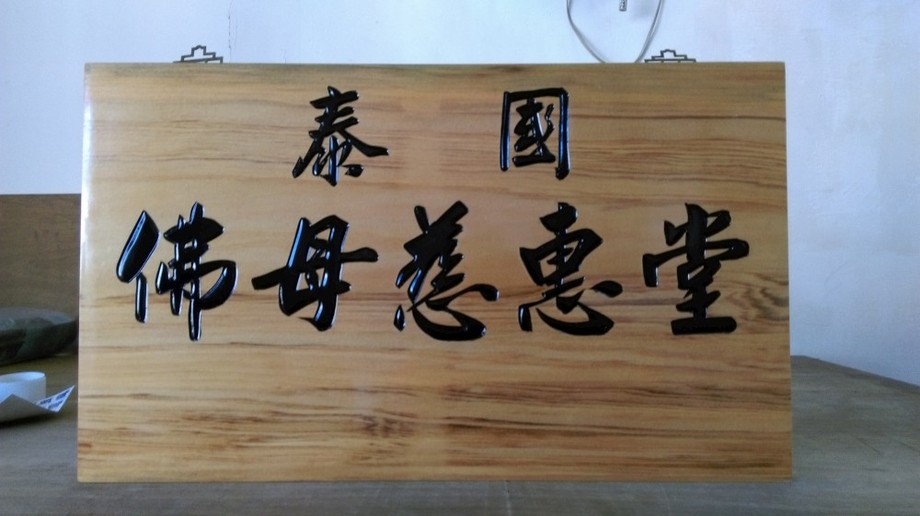 泰國
佛母慈惠堂